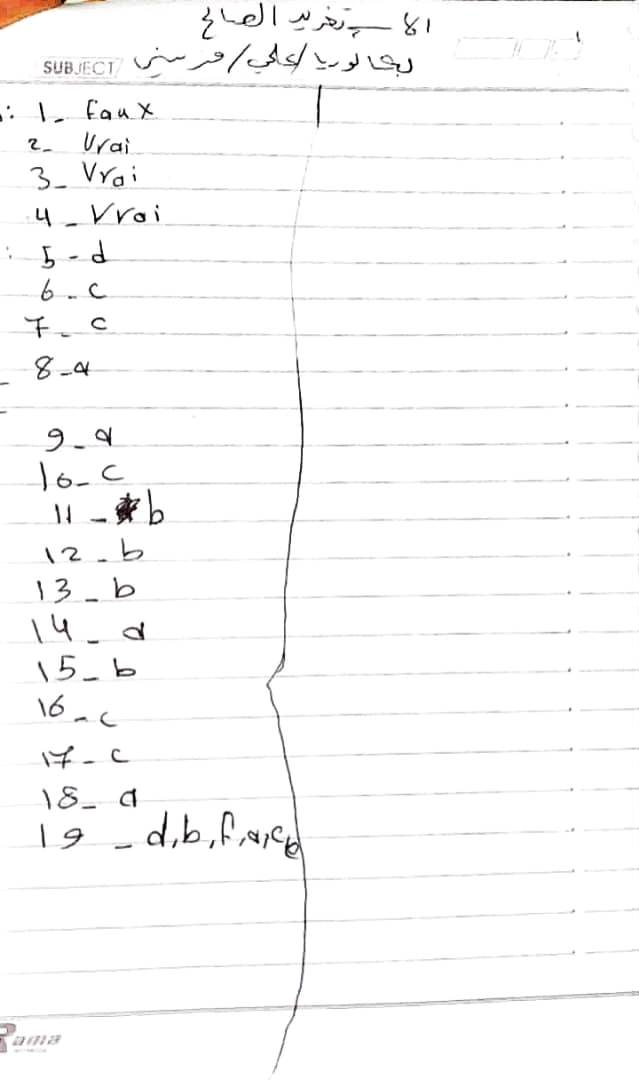 الاسم: تغريد الصالح
SUBJECT بكالوريا/علمي/فرنسي
: 1- Faux
2- Vrai
3- Vrai
4- Vrai
: 5- d
6- c
7- c
8- a
9- a
10- c
11- b
12- b
13- b
14- a
15- b
16- c
17- c
18- a
19- d,b,f,a,c,e
Rama